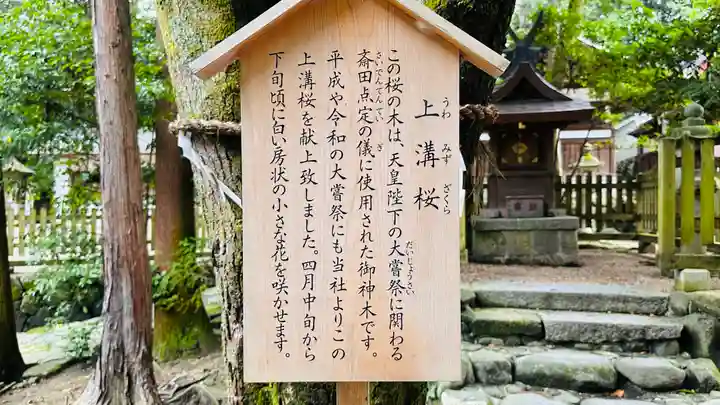 上溝桜
うわみずざくら
この桜の木は、天皇陛下の大嘗祭に関わる
だいじょうさい
斎田点定の儀に使用された御神木です。
さいでんてんていぎ
平成や令和の大嘗祭にも当社よりこの
上溝桜を献上致しました。四月中旬から
下旬頃に白い房状の小さな花を咲かせます。